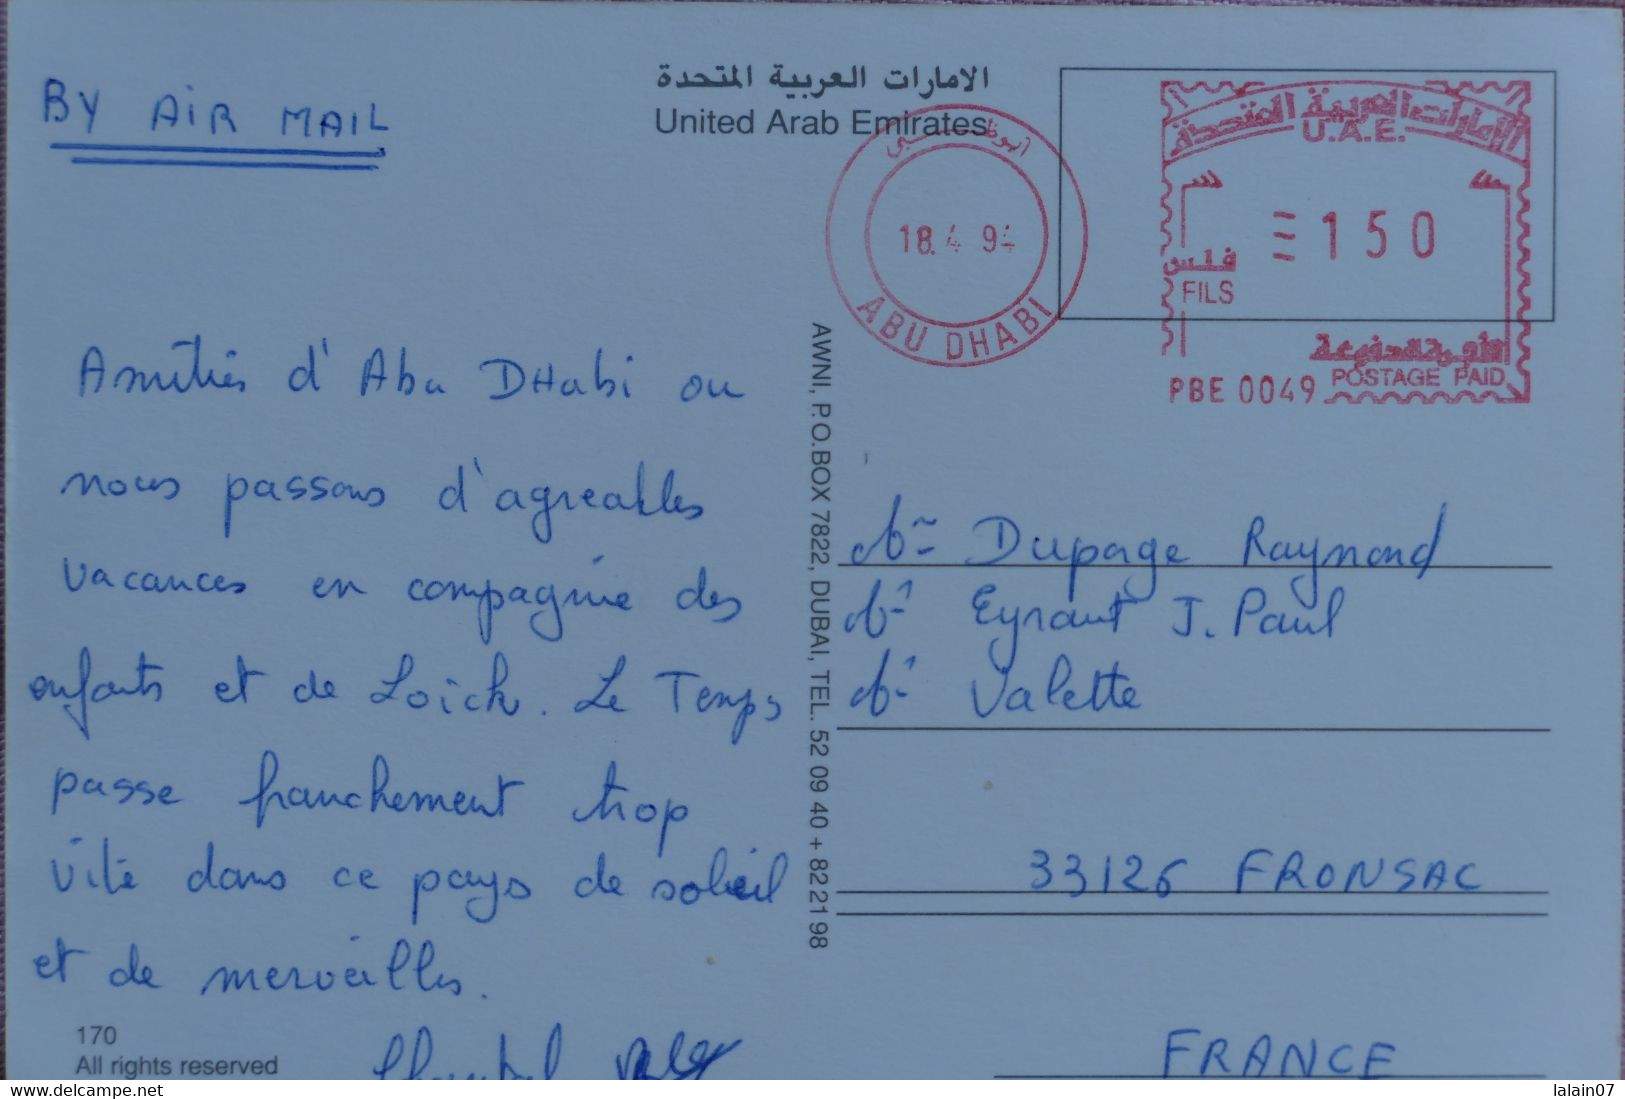 BY AIR MAIL
الامارات العربية المتحدة
United Arab Emirates
أبوظبي
18.4 94
ABU DHABI
الإمارات العربية المتحدة
U.A.E.
150
فلس
FILS
الأجرة مدفوعة
POSTAGE PAID
PBE 0049
Amitiés d'Abu DHabi ou
nous passons d'agreables
vacances en compagnie des
enfants et de Loïck. Le Temps
passe franchement trop
vite dans ce pays de soleil
et de merveilles.
Chantal
170
All rights reserved
AWNI, P.O.BOX 7822, DUBAI, TEL. 52 09 40 + 82 21 98
Dupage Raymond
Eyraut J. Paul
Valette
33126 FRONSAC
FRANCE
delcampe.net
lalain07